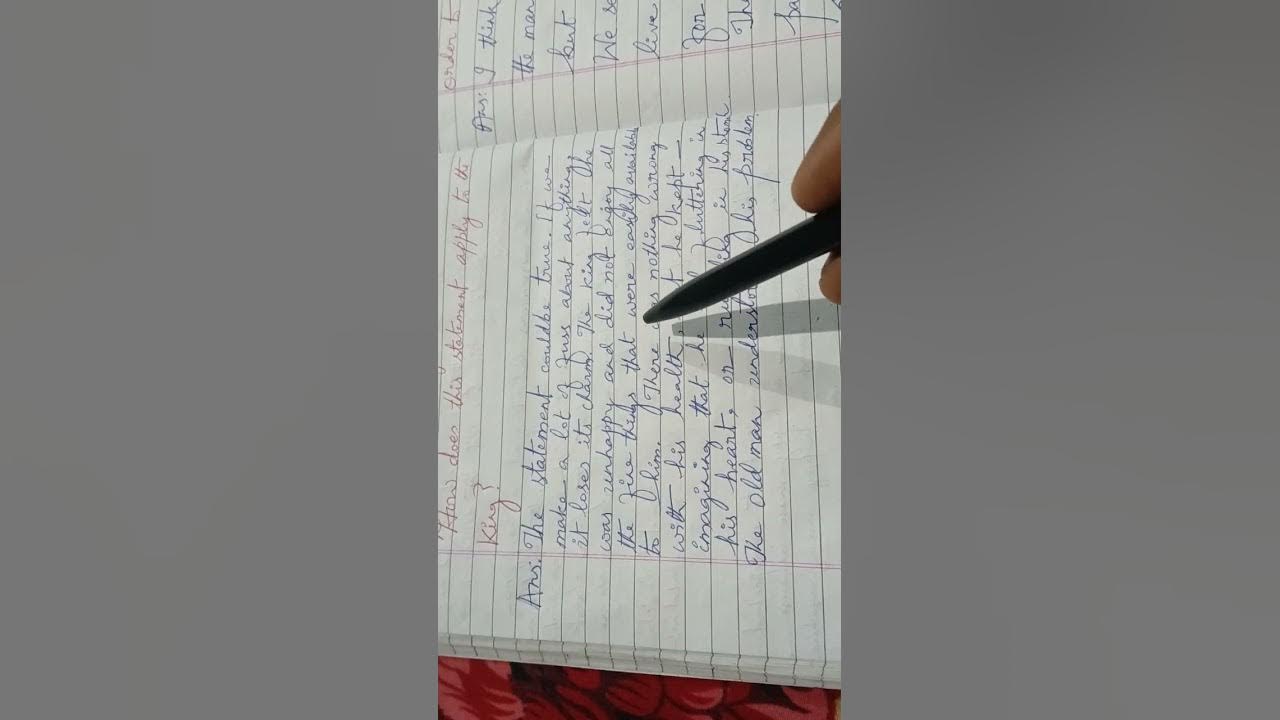 How does this statement apply to the
King?
Ans: The statement couldbe true. If we
make a lot of fuss about anything,
it loses its charm. The king felt the
was unhappy and did not enjoy all
the fine things that were easily available
to him. There nothing wrong
with his health, he kept
imagining that he fluttering in
his heart, or in his stomach.
The old man his problem.
order to
Ans: I think
the man
but
We
live
for
The